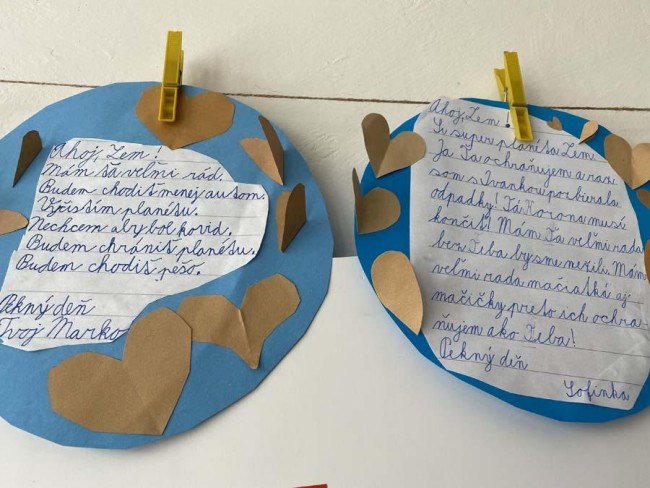 Ahoj, Zem!
Mám ťa veľmi rád.
Budem chodiť menej autom.
Vyčistím planétu.
Nechcem aby bol kovid.
Budem chrániť planétu.
Budem chodiť pešo.
Pekný deň
Tvoj Marko
Ahoj, Zem!
Si super planéta Zem.
Ja Ťa ochraňujem a raz
som s Ivankou pozbierala
odpadky! Tá Korona musí
končiť! Mám Ťa veľmi rada
bez Teba by sme nežili. Mám
veľmi rada mačiatká aj
mačičky preto ich ochra-
ňujem ako Teba!
Pekný deň
Sofinka